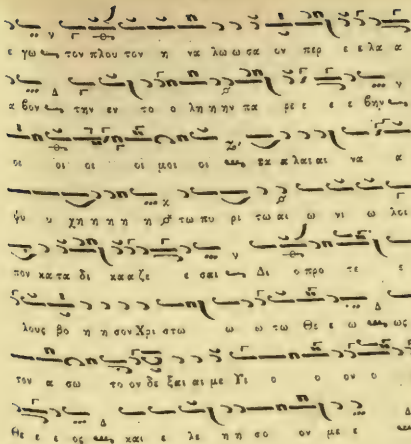 ε γω τον πλου τον η να λω ω σα ον περ ε ε λα α
α βον την εν το ο λη η ην πα ρε ε ε ε βην
οι οι οι οι μοι οι τα α λαι αι να α
ψυ υ χη η η η η τω πυ ρι τω αι ω νι ω λοι
πον κα τα δι κα α ζε ε σαι Δι ο προ τε ε
λους βο η η σον Χρι στω ω ω τω Θε ε ω ως
τον α σω το ον δε ξαι αι με Υι ο ο ον ο
Θε ε ε ος και ε λε η η σο ον με ε